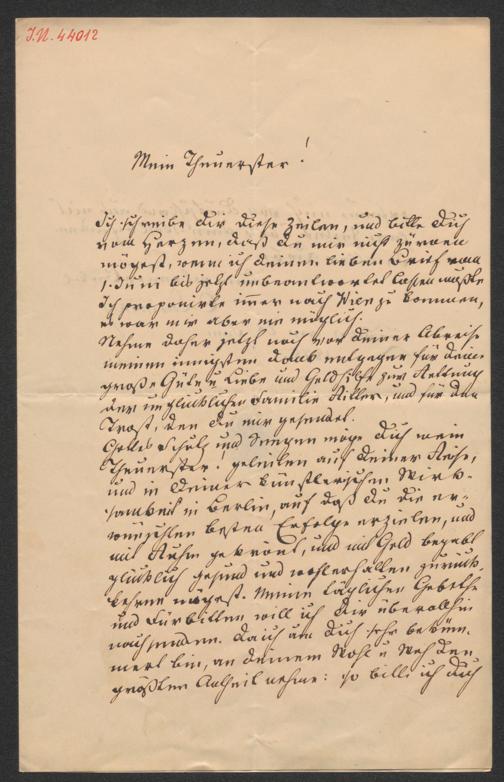 J.N. 44012
Mein Theuerster!
Ich schreibe dir diese Zeilen, und bitte dich
vom Herzen, daß du mir nicht zürnen
mögest, wenn ich deinen lieben Brief vom
1. Juni bis jetzt unbeantwortet lassen mußte
Ich proponirte immer nach Wien zu kommen,
es war mir aber nie möglich.
Nehme daher jetzt noch vor deiner Abreise
meinen innigsten Dank entgegen für deine
große Güte u Liebe und Geldhilfe zur Rettung
der unglücklichen Familie Stiller, und für den
Trost, den du mir gesendet.
Gottes Schutz und Segen möge dich mein
Theuerster! geleiten auf deiner Reise,
und in deiner künstlerischen Wirk-
samkeit in Berlin, auf daß du die er-
wünschten besten Erfolge erzielen, und
mit Ruhm gekrönt, und mit Geld begabt
glücklich gesund und wohlerhalten zurück-
kehren mögest. Meine täglichen Gebethe
und Fürbitten will ich dir überallhin
nachsenden. da ich um dich sehr beküm-
mert bin, an deinem Wohl u Weh den
größten Antheil nehme: so bitte ich dich